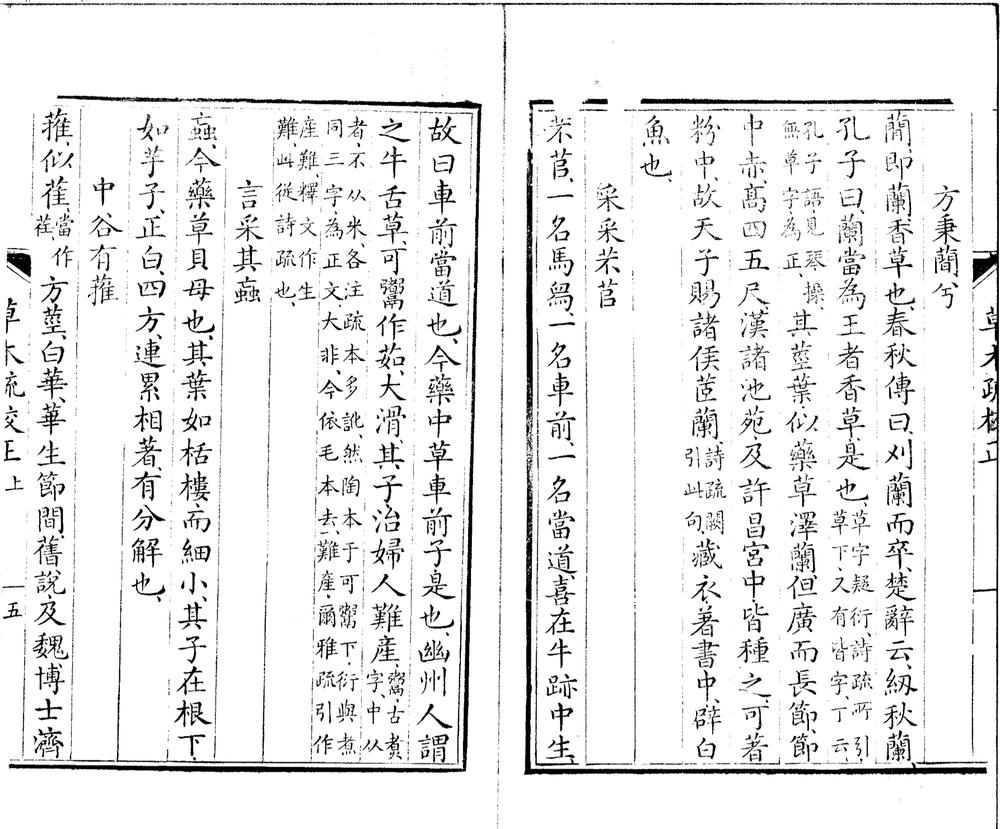 草木疏校正
方秉蕳兮
蕳、即蘭、香草也、春秋傳曰、刈蘭而卒、楚辭云、紉秋蘭、
孔子曰、蘭當為王者香草、是也、草字疑衍、詩疏所引、草下又有皆字、丁云、
孔子語、見琴操、無草字為正、其莖葉似藥草澤蘭、但廣而長節、節
中赤、高四五尺、漢諸池苑、及許昌宮中、皆種之、可著
粉中、故天子賜諸侯茝蘭、詩疏闕引此句、藏衣、著書中、辟白
魚也、
采采芣苢
芣苢、一名馬舄、一名車前、一名當道、喜在牛跡中生、
故曰車前當道也、今藥中草車前子是也、幽州人謂
之牛舌草、可鬻作茹、大滑、其子治婦人難產、鬻、古煑字、中从
者、不从米、各注疏本多訛、然陶本于可鬻下、衍與煮同三字、為正文、大非、今依毛本去、難產、爾雅疏引作
產難、釋文作生難、此從詩疏也、
言采其蝱
蝱、今藥草貝母也、其葉如栝樓而細小、其子在根下、
如芋子、正白、四方、連累相著、有分解也、
中谷有蓷
蓷、似萑、當作荏、方莖、白華、華生節間、舊說及魏博士濟
草木疏校正 上 五